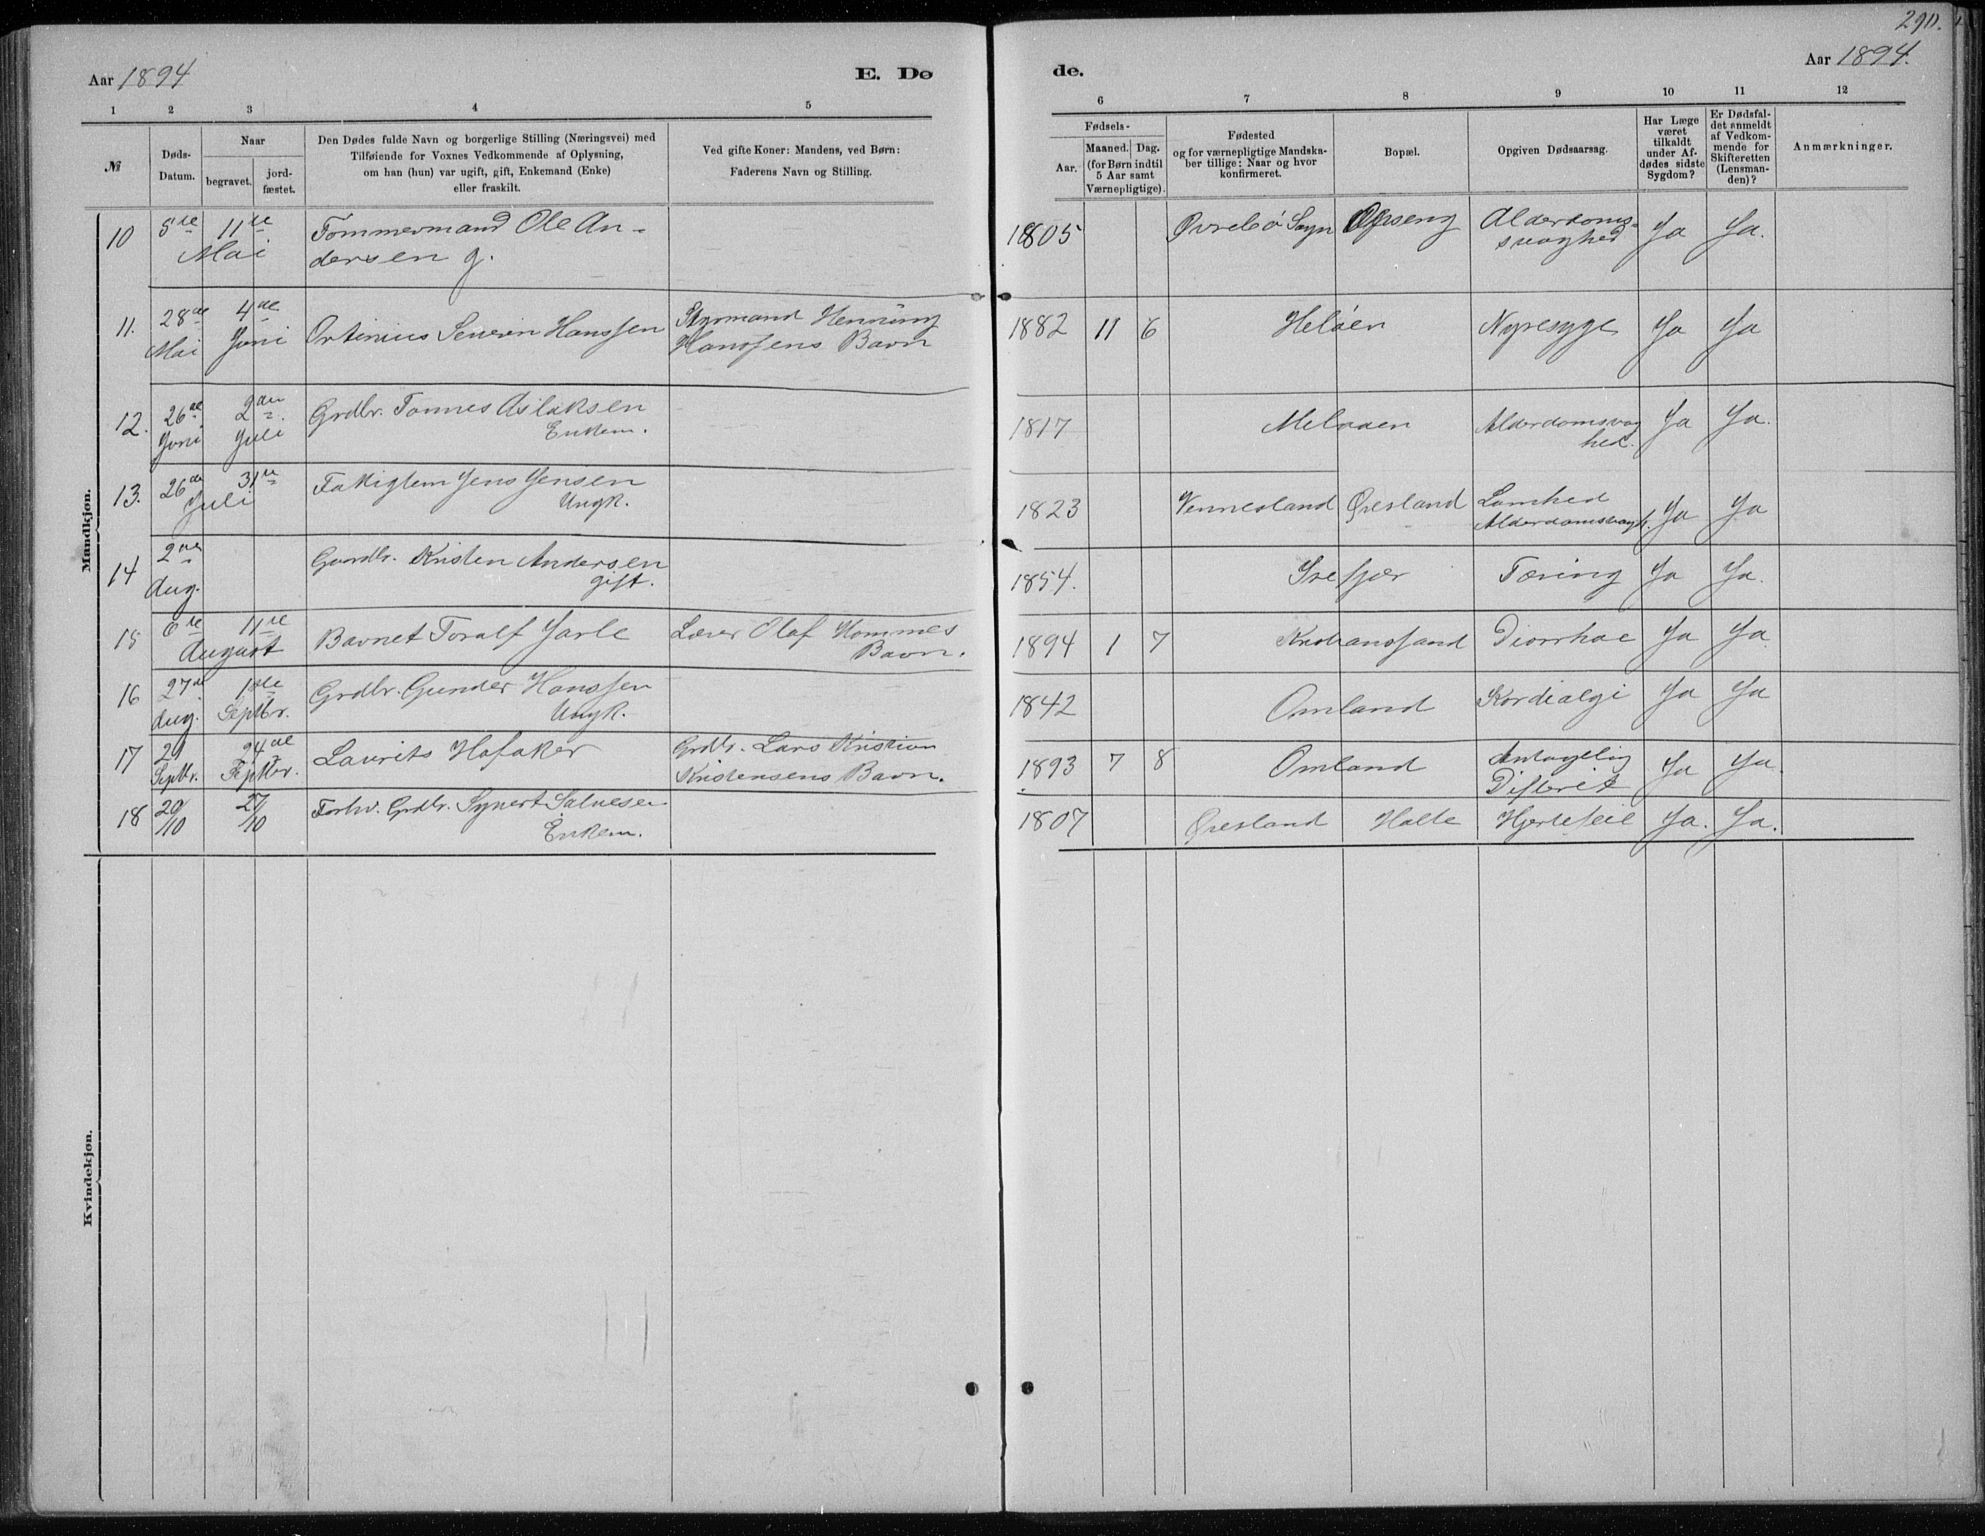 290.
Aar 1894
E. Dø
de.
Aar 1894.
1 2 3 4 5
6 7 8 9 10 11 12
№
Døds-
Datum.
Naar
begravet.
jord-
fæstet.
Den Dødes fulde Navn og borgerlige Stilling (Næringsvei) med
Tilføiende for Voxnes Vedkommende af Oplysning,
om han (hun) var ugift, gift, Enkemand (Enke)
eller fraskilt.
Ved gifte Koner: Mandens, ved Børn:
Faderens Navn og Stilling.
Fødsels-
Aar.
Maaned.
Dag.
(for Børn indtil
5 Aar samt
Værnepligtige).
Fødested
og for værnepligtige Mandska-
ber tillige: Naar og hvor
konfirmeret.
Bopæl.
Opgiven Dødsaarsag.
Har Læge
været
tilkaldt
under Af-
dødes sidste
Sygdom?
Er Dødsfal-
det anmeldt
af Vedkom-
mende for
Skifteretten
(Lensman-
den)?
Anmærkninger.
Mandkjøn.
10 5te 11te Tømmermand Ole An- 1805 Øvrebø Sogn Opseng Alderdoms- Ja Ja.
Mai dersen g. svaghed
11. 28de 4de Ortinius Severin Hanssen Styrmand Henning 1882 11 6 Heløen Nyresyge Ja Ja
Mai Juni Hanssens Bavn
12. 26de 2den Grdbr. Tønnes Aslaksen 1817 Melaaen Alderdomsvag Ja Ja.
Juni Juli Enkem. hed.
13. 26de 31te Fattiglem Jens Jensen 1823 Vennesland Øresland Lamhed Ja Ja
Juli Ungk. Alderdomsvagh.
14 2den Gaardbr. Kristen Andersen 1854. Srefjær Tæring Ja Ja.
Aug. gift.
15 6te 11te Barnet Toralf Jarle Lærer Olaf Hommes 1894 1 7 Kristianssand Diorrhae Ja Ja
August Bavn.
16 27de 1ste Grdbr. Gunder Hanssen 1842 Omland Kordialgi Ja Ja
Aug. Septbr. Ungk.
17 21 24de Laurits Hofaker Grdbr. Lars Kristian 1893 7 8 Omland Antagelig Ja Ja.
Septbr. Septbr. Kristensens Bavn. Difterit
18 20/10 27/10 Forhv. Grdbr. Synert Salvesen 1807 Øresland Halte Hjertefeil Ja. Ja.
Enkem.
Kvindekjøn.